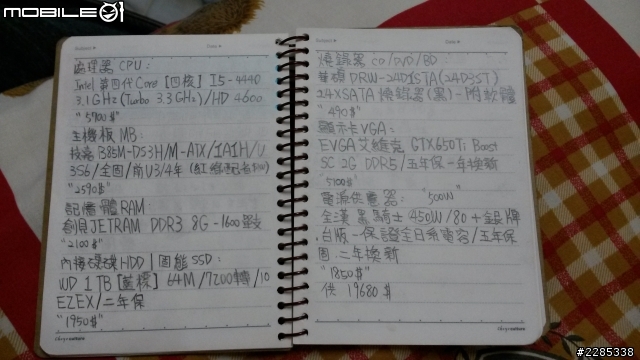 MOBILE01
處理器 CPU:
Intel 第四代 Core [四核] I5-4440
3.1GHz (Turbo 3.3GHz)/HD 4600
"5700$"
主機板 MB:
技嘉 B85M-DS3H/M-ATX/1A1H/U
3S6/全固/前U3/4年
"2590$"
記憶體 RAM
創見 JETRAM DDR3 8G-1600
"2100$"
內接硬碟 HDD | 固態 SSD:
WD 1TB [藍標] 64M/7200轉/10
EZEX/二年保
"1950$"
燒錄器 CD/DVD/BD:
華碩 DRW-24D1STA(24D3ST)
24X SATA 燒錄器(黑)-附軟體
"490$"
顯示卡 VGA:
EVGA 艾維克 GTX650Ti Boost
SC 2G DDR5/五年保一年換新
"5100$"
電源供電器: "500W"
全漢 黑騎士 450W/80+銀牌
台版-保證全日系電容/五年保
固 二年換新
"1850$"
供 19680$
#2285338